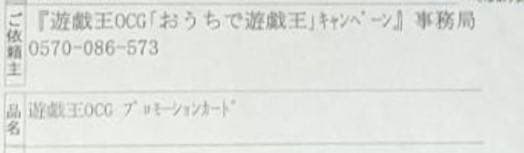 ご依頼主
『遊戯王OCG｢おうちで遊戯王｣ｷｬﾝﾍﾟｰﾝ』事務局
0570-086-573
品名
遊戯王OCG ﾌﾟﾛﾓｰｼｮﾝｶｰﾄﾞ